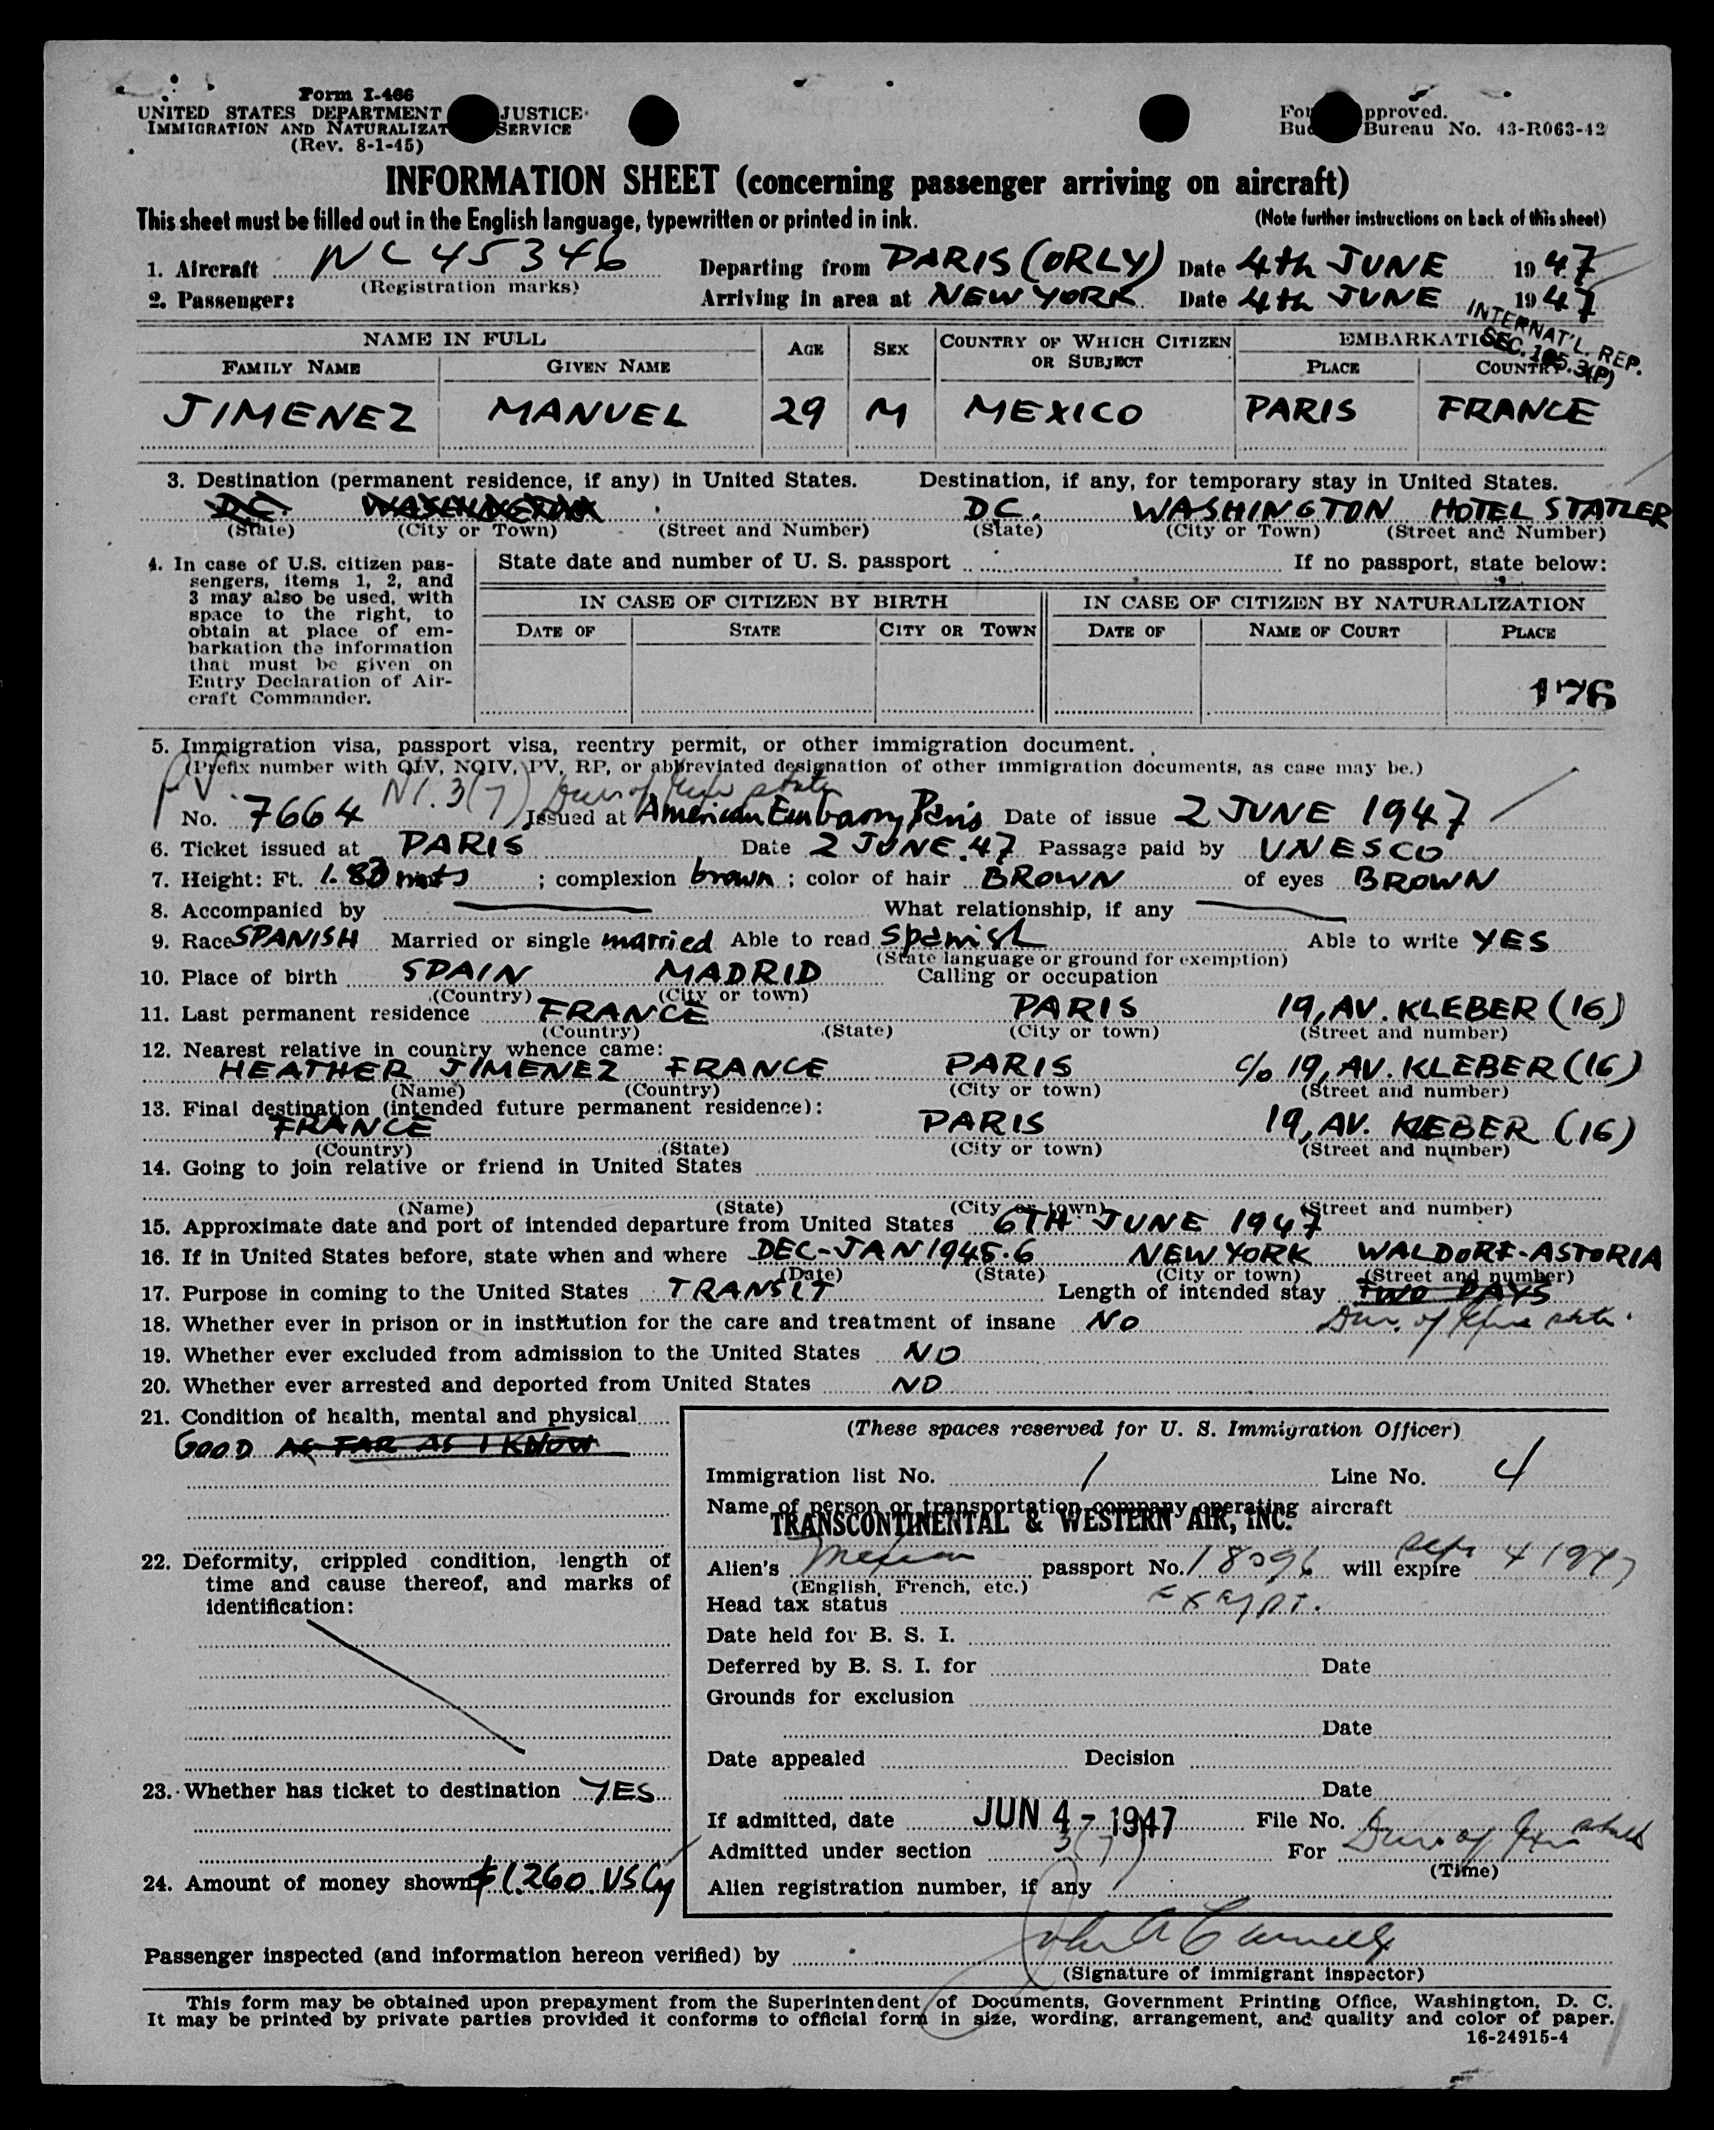 Form I-466
UNITED STATES DEPARTMENT JUSTICE
IMMIGRATION AND NATURALIZAT SERVICE
(Rev. 8-1-45)
For pproved.
Bu Bureau No. 43-R063-42
INFORMATION SHEET (concerning passenger arriving on aircraft)
This sheet must be filled out in the English language, typewritten or printed in ink.
(Note further instructions on back of this sheet)
1. Aircraft NC 45346 Departing from PARIS (ORLY) Date 4th JUNE 1947
(Registration marks)
2. Passenger: Arriving in area at NEW YORK Date 4th JUNE 1947
INTERNAT'L. REP.
SEC. 105.3(P)
NAME IN FULL AGE SEX COUNTRY OF WHICH CITIZEN OR SUBJECT EMBARKATI
FAMILY NAME GIVEN NAME PLACE COUNTRY
JIMENEZ MANUEL 29 M MEXICO PARIS FRANCE
3. Destination (permanent residence, if any) in United States. Destination, if any, for temporary stay in United States.
DC. WASHINGTON DC. WASHINGTON HOTEL STATLER
(State) (City or Town) (Street and Number) (State) (City or Town) (Street and Number)
4. In case of U.S. citizen pas-
sengers, items 1, 2, and
3 may also be used, with
space to the right, to
obtain at place of em-
barkation the information
that must be given on
Entry Declaration of Air-
craft Commander.
State date and number of U. S. passport If no passport, state below:
IN CASE OF CITIZEN BY BIRTH IN CASE OF CITIZEN BY NATURALIZATION
DATE OF STATE CITY OR TOWN DATE OF NAME OF COURT PLACE
176
5. Immigration visa, passport visa, reentry permit, or other immigration document.
(Prefix number with QIV, NQIV, PV, RP, or abbreviated designation of other immigration documents, as case may be.)
PV. NI. 3(7)
No. 7664 Issued at American Embassy Paris Date of issue 2 JUNE 1947
6. Ticket issued at PARIS Date 2 JUNE.47 Passage paid by UNESCO
7. Height: Ft. 1.83 mets ; complexion brown ; color of hair BROWN of eyes BROWN
8. Accompanied by What relationship, if any
9. Race SPANISH Married or single married Able to read Spanish Able to write YES
(State language or ground for exemption)
10. Place of birth SPAIN MADRID Calling or occupation
(Country) (City or town)
11. Last permanent residence FRANCE PARIS 19, AV. KLEBER (16)
(Country) (State) (City or town) (Street and number)
12. Nearest relative in country whence came:
HEATHER JIMENEZ FRANCE PARIS c/o 19, AV. KLEBER (16)
(Name) (Country) (City or town) (Street and number)
13. Final destination (intended future permanent residence):
FRANCE PARIS 19, AV. KLEBER (16)
(Country) (State) (City or town) (Street and number)
14. Going to join relative or friend in United States
(Name) (State) (City or town) (Street and number)
15. Approximate date and port of intended departure from United States 6TH JUNE 1947
16. If in United States before, state when and where DEC-JAN 1945.6 NEW YORK WALDORF-ASTORIA
(Date) (State) (City or town) (Street and number)
17. Purpose in coming to the United States TRANSIT Length of intended stay TWO DAYS
18. Whether ever in prison or in institution for the care and treatment of insane NO
19. Whether ever excluded from admission to the United States NO
20. Whether ever arrested and deported from United States NO
21. Condition of health, mental and physical
GOOD AS FAR AS I KNOW
22. Deformity, crippled condition, length of
time and cause thereof, and marks of
identification:
23. Whether has ticket to destination YES
24. Amount of money shown $1.260. US Cy
(These spaces reserved for U. S. Immigration Officer)
Immigration list No. 1 Line No. 4
Name of person or transportation company operating aircraft
TRANSCONTINENTAL & WESTERN AIR, INC.
Alien's Mexican passport No. 18096 will expire Sept 4 1947
(English, French, etc.)
Head tax status Exempt.
Date held for B. S. I.
Deferred by B. S. I. for Date
Grounds for exclusion
Date
Date appealed Decision
Date
If admitted, date JUN 4 - 1947 File No.
Admitted under section 3(7) For
(Time)
Alien registration number, if any
Passenger inspected (and information hereon verified) by
(Signature of immigrant inspector)
This form may be obtained upon prepayment from the Superintendent of Documents, Government Printing Office, Washington, D. C.
It may be printed by private parties provided it conforms to official form in size, wording, arrangement, and quality and color of paper.
16-24915-4